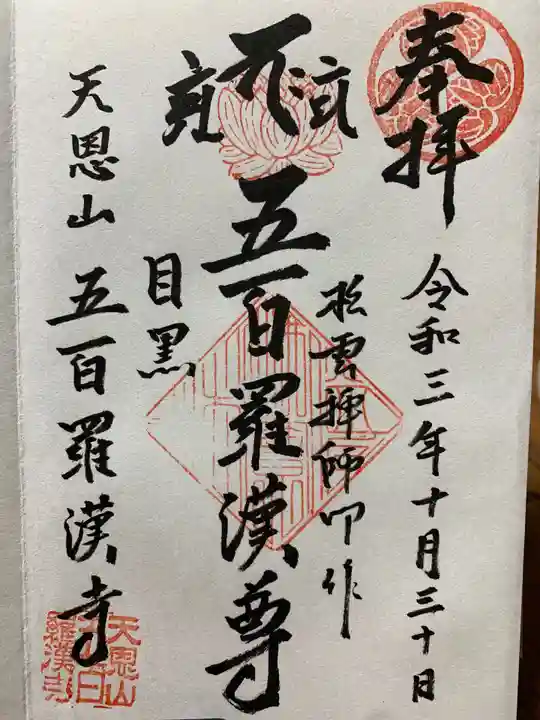 奉拝
令和三年十月三十日
松雲禅師御作
五百羅漢尊
目黒
天恩山 五百羅漢寺
天恩山
五百
羅漢寺